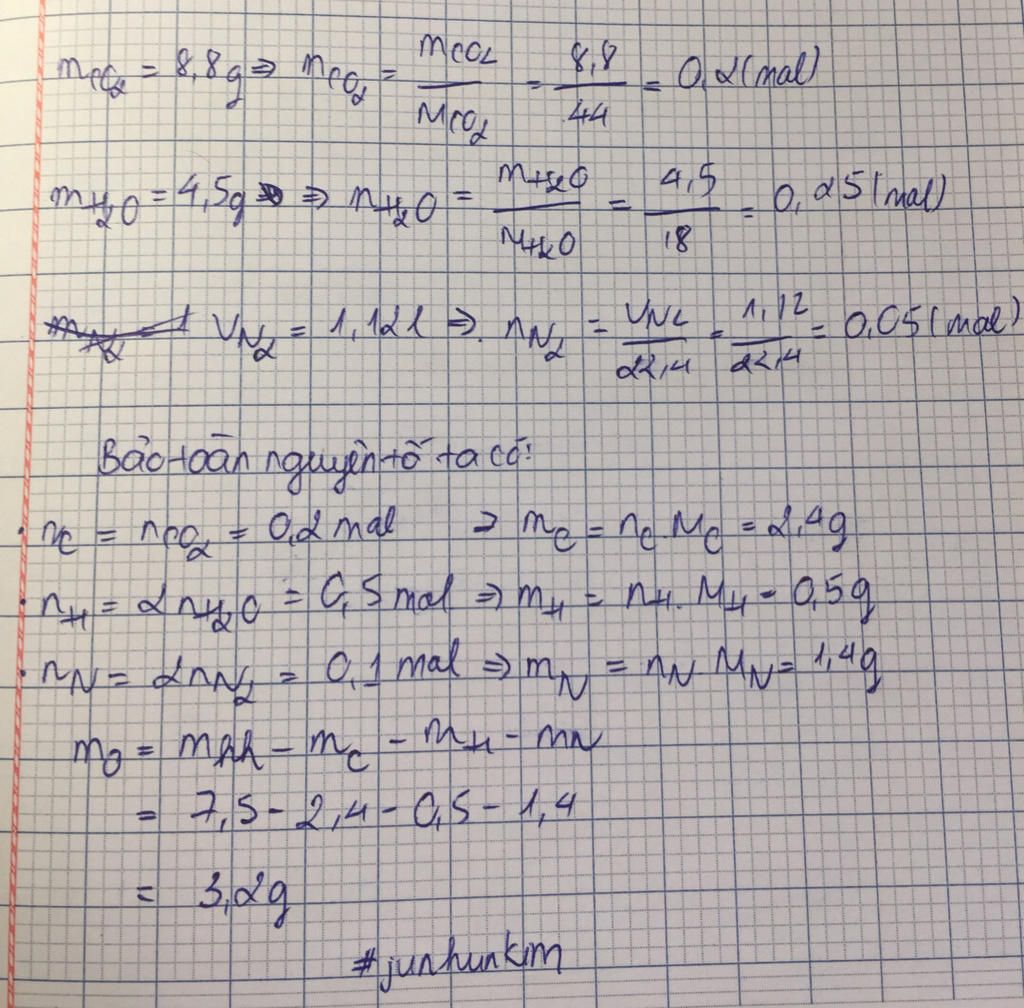 mCO2 = 8,8g ⇒ nCO2 = mCO2 / MCO2 = 8,8 / 44 = 0,2 (mol)
mH2O = 4,5g ⇒ nH2O = mH2O / MH2O = 4,5 / 18 = 0,25 (mol)
VN2 = 1,12l ⇒ nN2 = VN2 / 22,4 = 1,12 / 22,4 = 0,05 (mol)
Bảo toàn nguyên tố ta có:
• nC = nCO2 = 0,2 mol ⇒ mC = nC.MC = 2,4g
• nH = 2nH2O = 0,5 mol ⇒ mH = nH.MH = 0,5g
• nN = 2nN2 = 0,1 mol ⇒ mN = nN.MN = 1,4g
mO = mA - mC - mH - mN
= 7,5 - 2,4 - 0,5 - 1,4
= 3,2g
#junhunkim